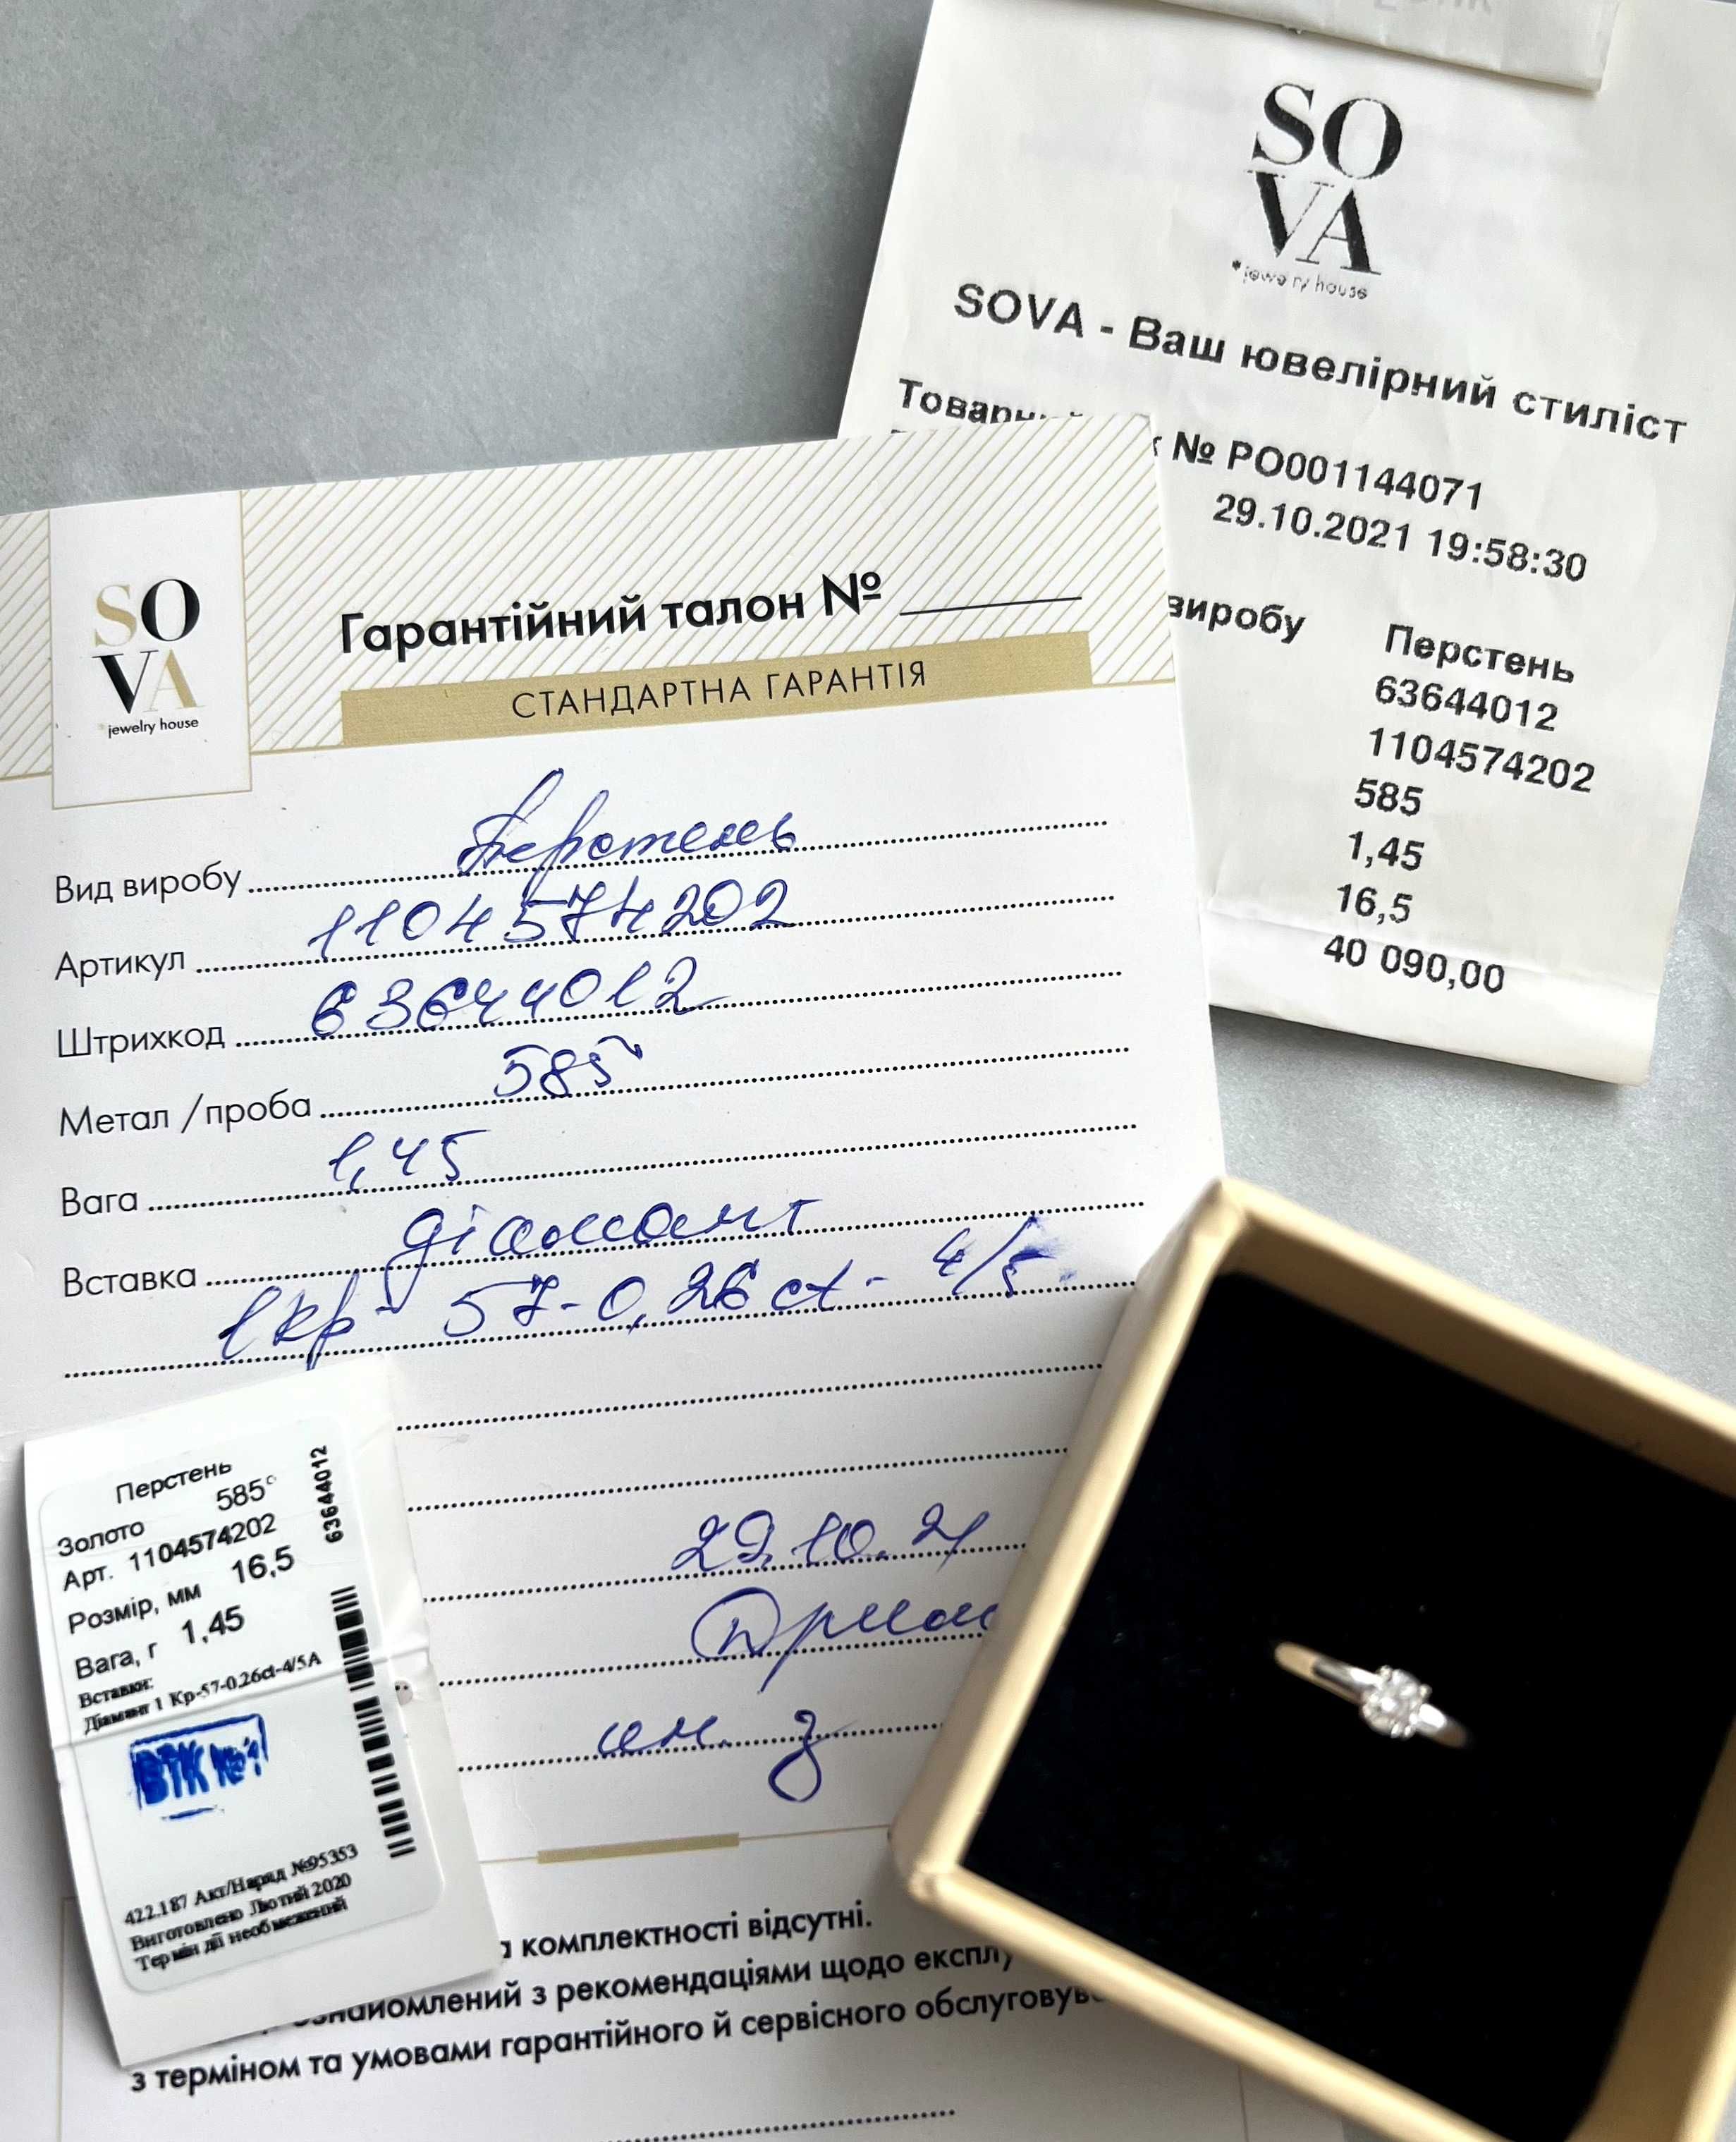 SO
VA
*jewelry house
SOVA - Ваш ювелірний стиліст
№ РО001144071
29.10.2021 19:58:30
виробу Перстень
63644012
1104574202
585
1,45
16,5
40 090,00
SO
VA
*jewelry house
Гарантійний талон №
СТАНДАРТНА ГАРАНТІЯ
Вид виробу Перстень
Артикул 1104574202
Штрихкод 63644012
Метал / проба 585
Вага 1,45
Вставка діамант
1 кр - 57-0,26 ct - 4/5
29.10.21
Перстень
Золото 585°
Арт. 1104574202
Розмір, мм 16,5
Вага, г 1,45
Вставки:
Діамант 1 Кр-57-0,26ct-4/5А
63644012
ВТК №1
422.187 Акт/Наряд №95353
Виготовлено Лютий 2020
Термін дії необмежений
комплектності відсутні.
з рекомендаціями щодо
з терміном та умовами гарантійного й сервісного